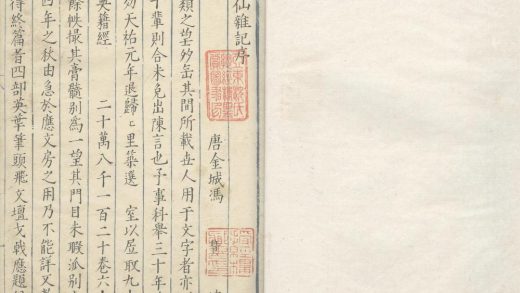 仙雜記序
唐金城馮
類之望紗缶其間所載世人用于文字者亦
于輩則合未免出陳言也予事科舉三十年
幼天祐元年退歸〻里築選 室以居取九
英籍經 二十萬八千一百二十卷六
除帙撮其膏髓別為一望其門目未暇派別
四年之秋由急於應文房之用乃不能詳又
待終篇昔四部英華筆頭飛文壇戈戟應題